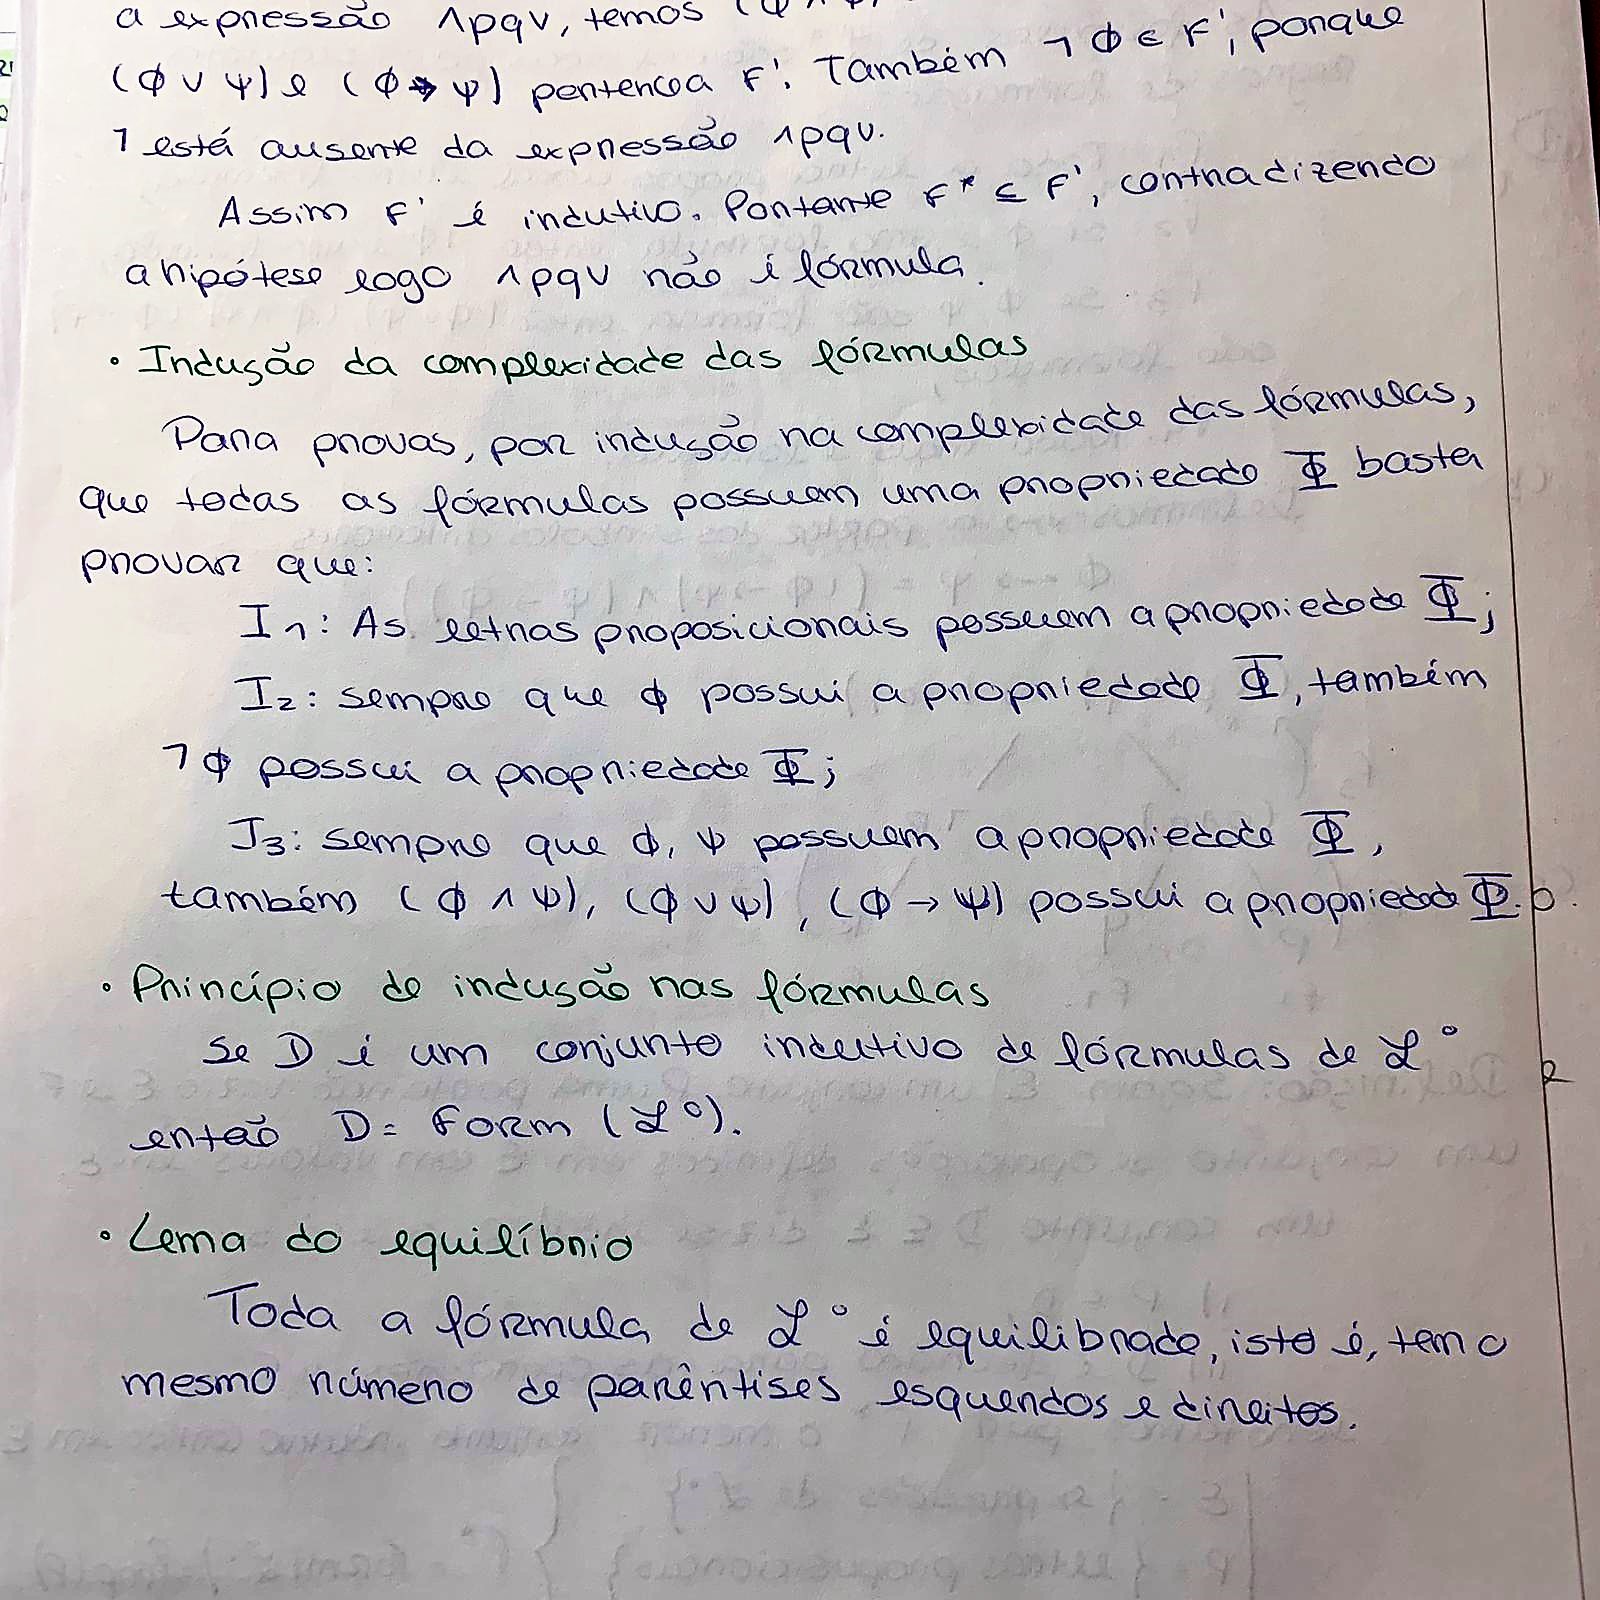 a expressão ∧pqv, temos (ϕ ∧ ψ)
(ϕ ∨ ψ) e (ϕ → ψ) pertencea F'. Também ¬ϕ ∈ F', porque
¬ está ausente da expressão ∧pqv.
Assim F' é indutivo. Portante F* ⊆ F', contradizendo
a hipótese logo ∧pqv não é fórmula.
• Indução da complexidade das fórmulas
Para provas, por indução na complexidade das fórmulas,
que todas as fórmulas possuem uma propriedade Φ basta
provar que:
I₁: As letras proposicionais possuem a propriedade Φ;
I₂: sempre que ϕ possui a propriedade Φ, também
¬ϕ possui a propriedade Φ;
I₃: sempre que ϕ, ψ possuem a propriedade Φ,
também (ϕ ∧ ψ), (ϕ ∨ ψ), (ϕ → ψ) possui a propriedade Φ.
• Princípio de indução nas fórmulas
Se D é um conjunto indutivo de fórmulas de ℒ°
então D = Form (ℒ°).
• Lema do equilíbrio
Toda a fórmula de ℒ° é equilibrada, isto é, tem o
mesmo número de parêntises esquerdos e direitos.